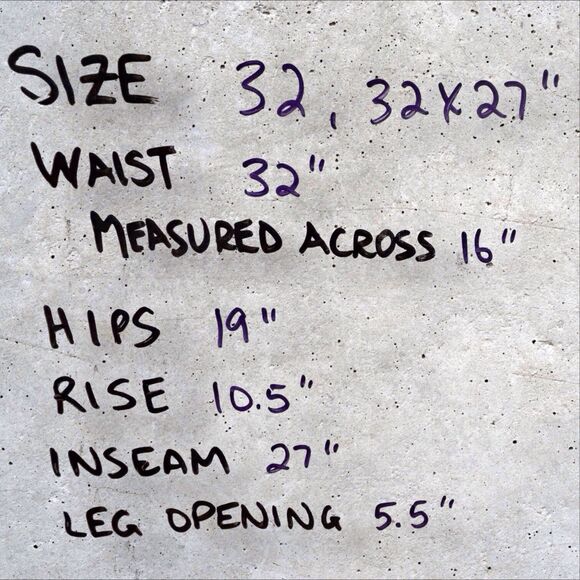 SIZE 32, 32X27"
WAIST 32"
MEASURED ACROSS 16"
HIPS 19"
RISE 10.5"
INSEAM 27"
LEG OPENING 5.5"